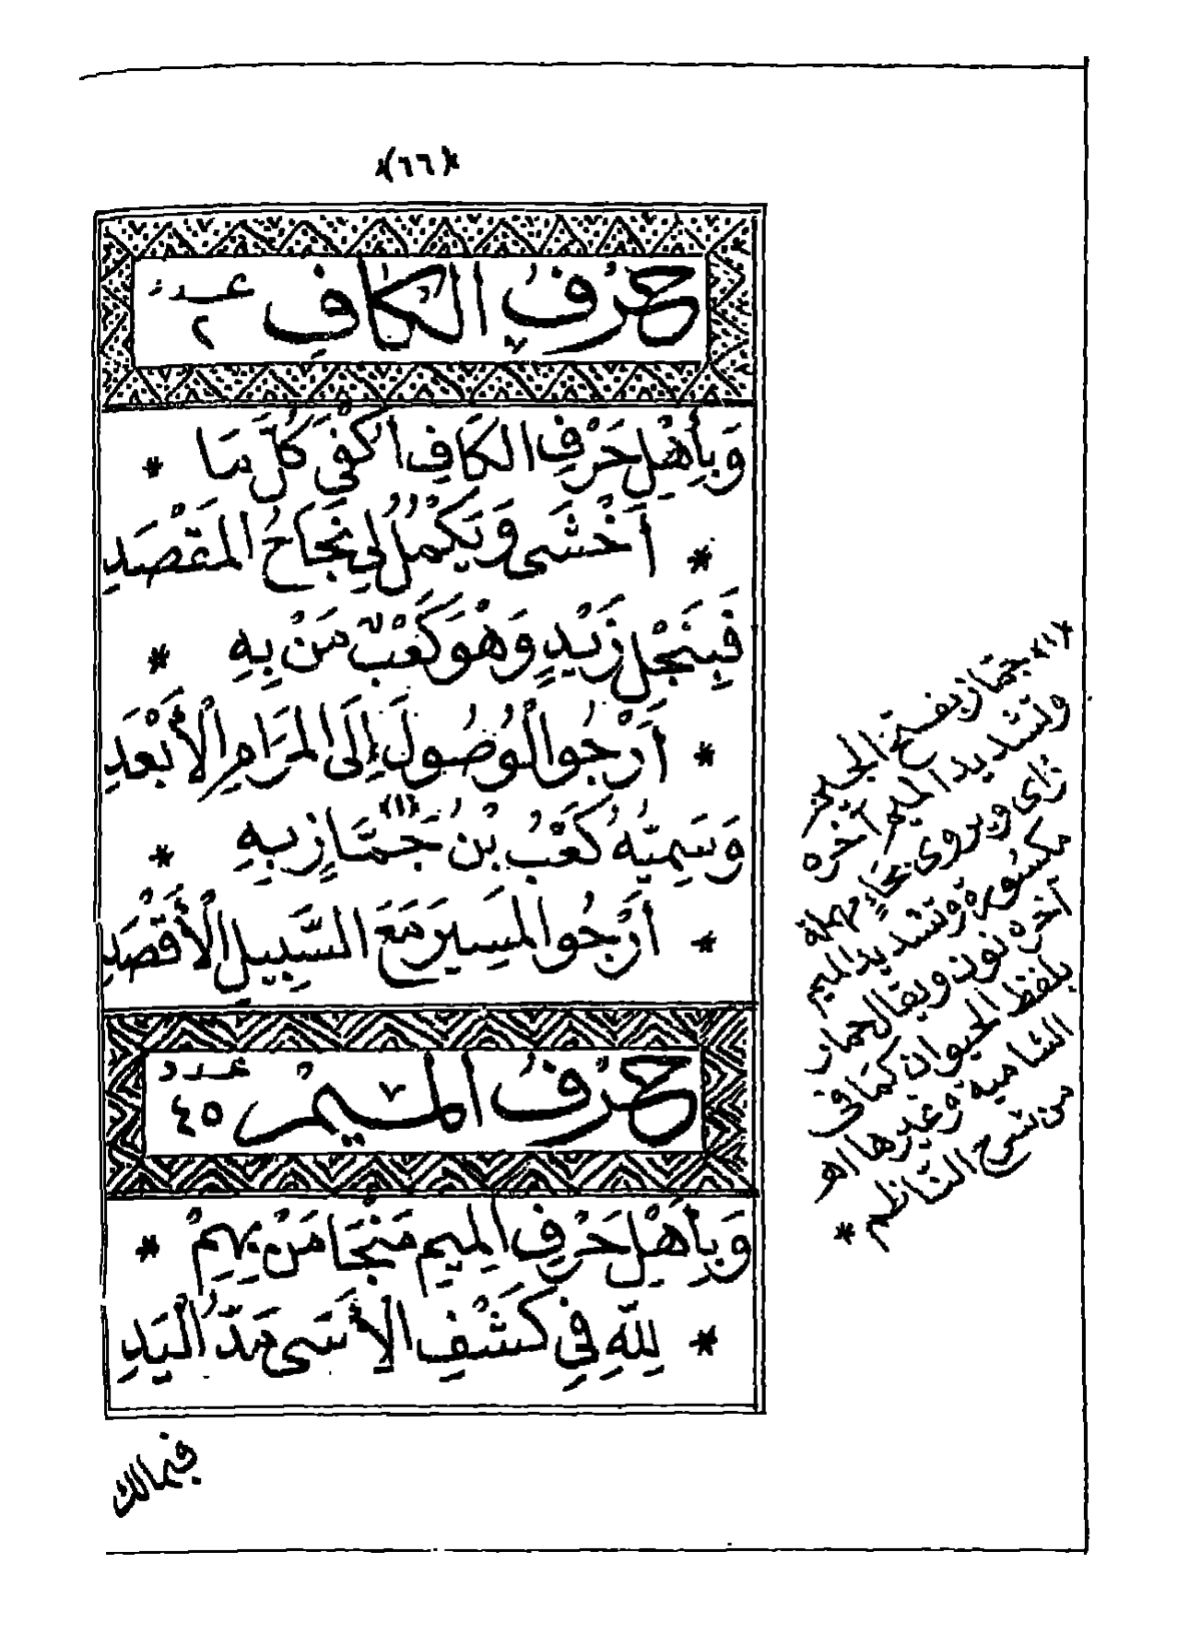 ﴿٦٦﴾
حَرْفُ الكَافِ عدد ٢
وَبِأَهْلِ حَرْفِ الكَافِ أُكْفَى كُلَّ مَا *
* أَخْشَى وَيَكْمُلُ لِي نَجَاحُ المَقْصَدِ
فَبِنَجْلِ زَيْدٍ وَهْوَ كَعْبٌ مَنْ بِهِ *
* أَرْجُو الْوُصُولَ إِلَى المَرَامِ الْأَبْعَدِ
وَسَمِيُّهُ كَعْبُ بْنُ جَمَّازٍ (١) بِهِ *
* أَرْجُو المَسِيرَ مَعَ السَّبِيلِ الْأَقْصَدِ
حَرْفُ المِيمِ عدد ٤٥
وَبِأَهْلِ حَرْفِ المِيمِ مَنْجَا مَنْ بِهِمْ *
* لِلّهِ فِي كَشْفِ الأَسَى مَدَّ الْيَدِ
فبمالك
(١) جمَّاز بفتح الجيم
وتشديد الميم آخره
زاى ويروى بحاءٍ مهملة
مكسورة وتشديد الميم
آخره نون ويقال حمار
بلفظ الحيوان كما فى
الشامية وغيرها اهـ
من شرح الناظم *